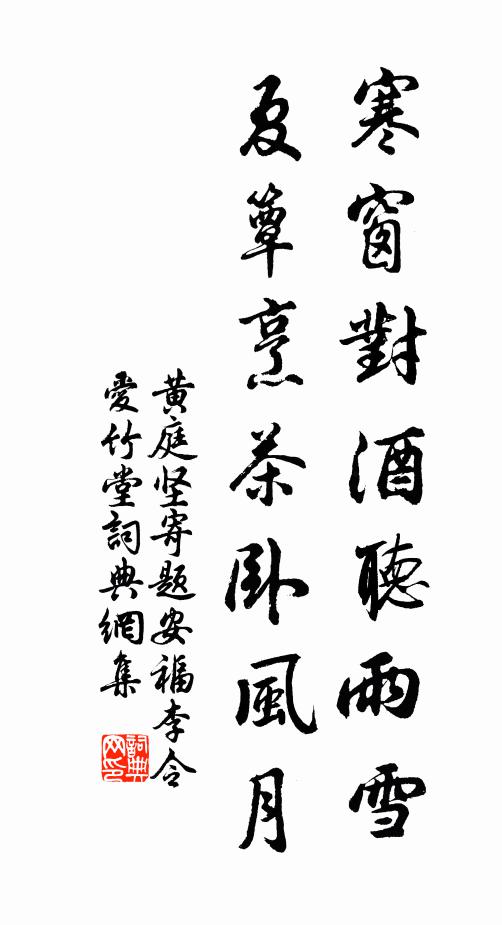 寒窗對酒聽雨雪
夏簟烹茶卧風月
黄庭坚寄题安福李令
愛竹堂詞典網集
詞典
网印